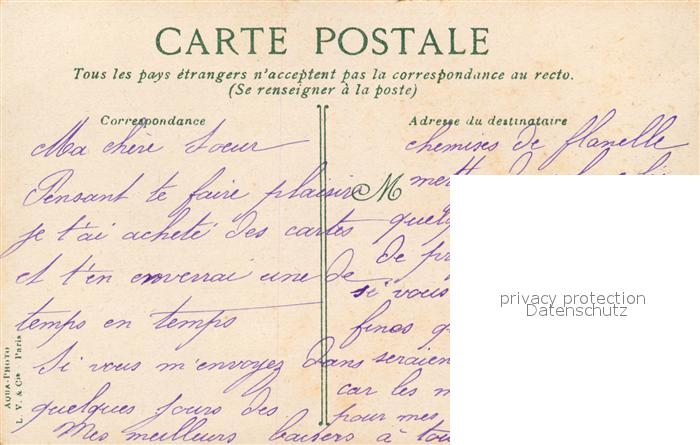 CARTE POSTALE
Tous les pays étrangers n'acceptent pas la correspondance au recto.
(Se renseigner à la poste)
Correspondance
Ma chère Soeur
Pensant te faire plaisir
je t'ai acheté des cartes
et t'en enverrai une de
temps en temps
Si vous m'envoyez dans
quelques jours des
Mes meilleurs baisers à tou
Adresse du destinataire
chemises de flanelle
M
quelq
de pr
si vous
fines q
seraien
car les m
pour mes
privacy protection
Datenschutz
AQUA-PHOTO
L. V. & Cie Paris